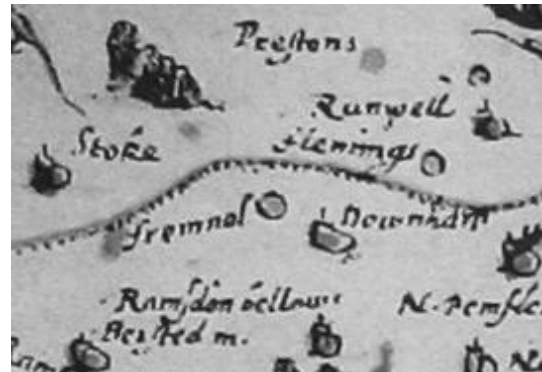 Prestons
Runwell
Stoke
flemings
fremnol
Downham
Ramsdon bellous
N. Pemfle
Ram